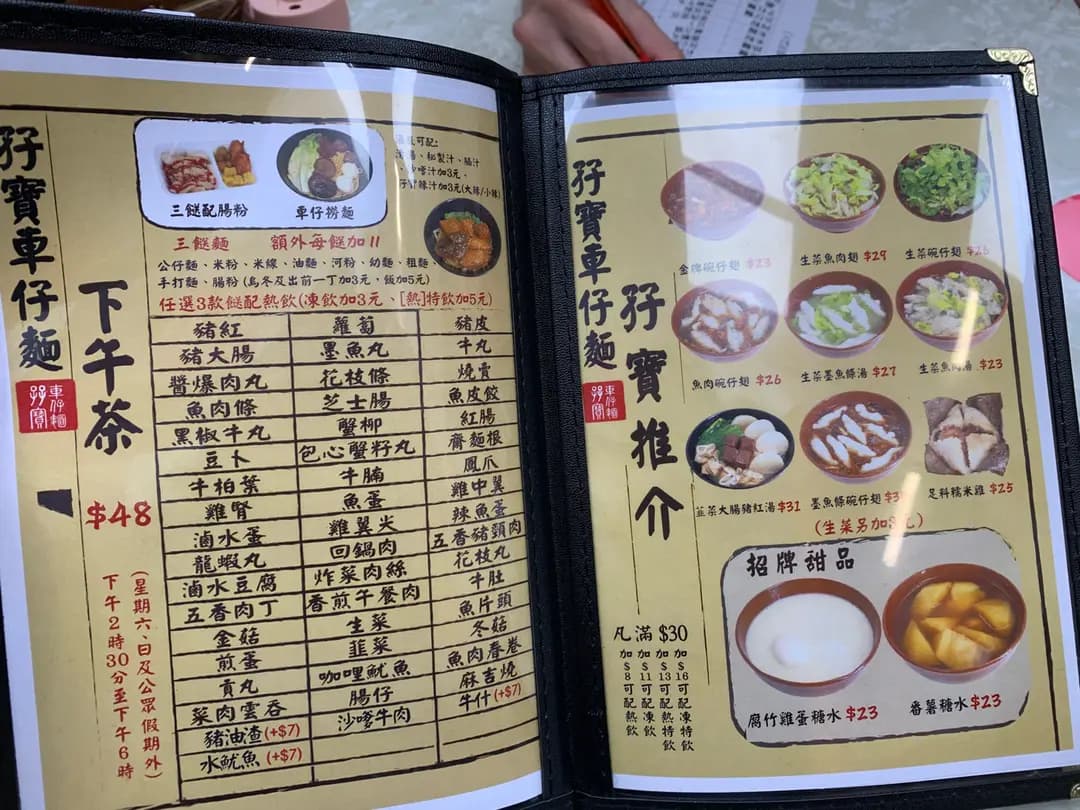 孖寶車仔麵
車仔麵
孖寶
下午茶
$48
(星期六、日及公眾假期外)
下午2時30分至下午6時
三餸配腸粉
車仔撈麵
可配:
秘製汁、腩汁
沙嗲汁加3元,
辣汁加3元(大辣/小辣)
三餸麵 額外每餸加11
公仔麵、米粉、米線、油麵、河粉、幼麵、粗麵、
手打麵、腸粉(烏冬及出前一丁加3元,飯加5元)
任選3款餸配熱飲(凍飲加3元、[熱]特飲加5元)
豬紅 蘿蔔 豬皮
豬大腸 墨魚丸 牛丸
醬爆肉丸 花枝條 燒賣
魚肉條 芝士腸 魚皮餃
黑椒牛丸 蟹柳 紅腸
豆卜 包心蟹籽丸 齋麵根
牛柏葉 牛腩 鳳爪
雞腎 魚蛋 雞中翼
滷水蛋 雞翼尖 辣魚蛋
龍蝦丸 回鍋肉 五香豬頭肉
滷水豆腐 炸菜肉絲 花枝丸
五香肉丁 香煎午餐肉 牛肚
金菇 生菜 魚片頭
煎蛋 韮菜 冬菇
貢丸 咖哩魷魚 魚肉春卷
菜肉雲吞 腸仔 麻吉燒
豬油渣(+$7) 沙嗲牛肉 牛什(+$7)
水魷魚(+$7)
孖寶車仔麵
車仔麵
孖寶
孖寶推介
金牌碗仔翅 $23
生菜魚肉翅 $29
生菜碗仔翅 $26
魚肉碗仔翅 $26
生菜墨魚條湯 $27
生菜魚肉湯 $23
韮菜大腸豬紅湯 $31
墨魚條碗仔翅
足料糯米雞 $25
(生菜另加 元)
凡滿 $30
加$8可配熱飲
加$11可配凍飲
加$13可配熱特飲
加$16可配凍特飲
招牌甜品
腐竹雞蛋糖水 $23
番薯糖水 $23